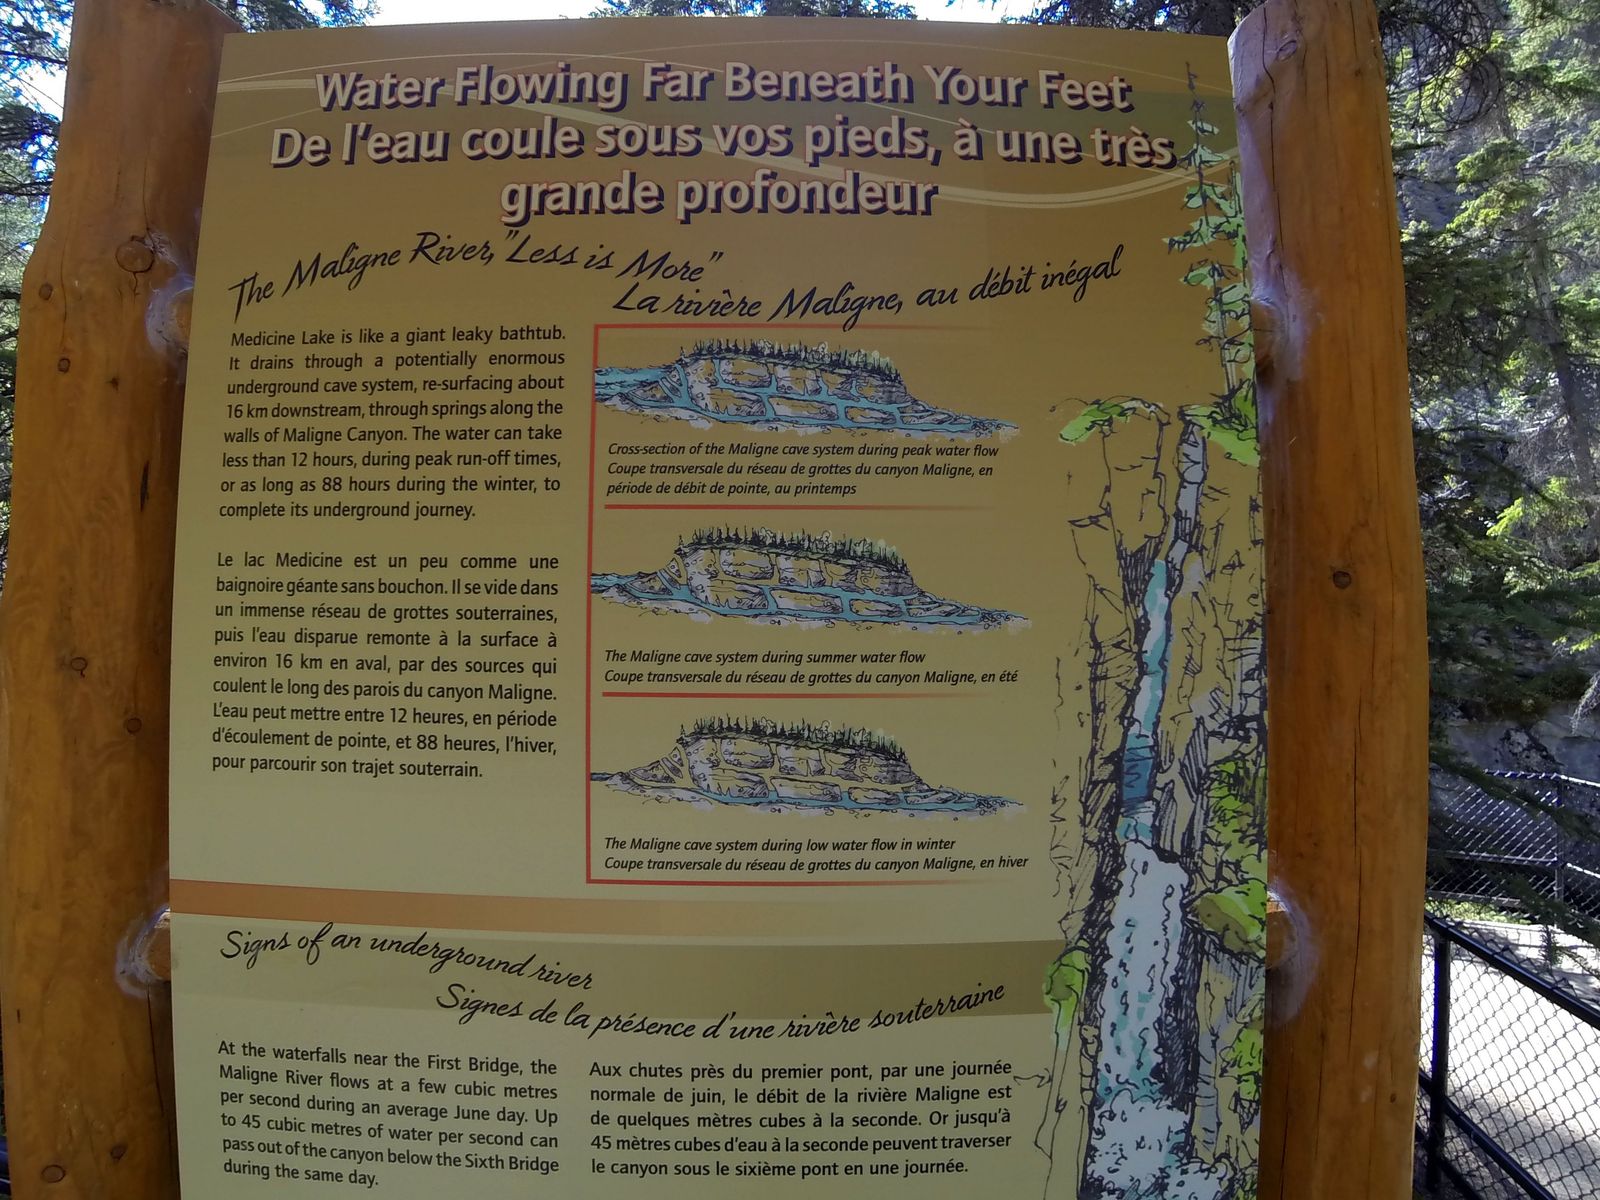 Water Flowing Far Beneath Your Feet
De l'eau coule sous vos pieds, à une très
grande profondeur
The Maligne River, "Less is More"
La rivière Maligne, au débit inégal
Medicine Lake is like a giant leaky bathtub.
It drains through a potentially enormous
underground cave system, re-surfacing about
16 km downstream, through springs along the
walls of Maligne Canyon. The water can take
less than 12 hours, during peak run-off times,
or as long as 88 hours during the winter, to
complete its underground journey.
Le lac Medicine est un peu comme une
baignoire géante sans bouchon. Il se vide dans
un immense réseau de grottes souterraines,
puis l'eau disparue remonte à la surface à
environ 16 km en aval, par des sources qui
coulent le long des parois du canyon Maligne.
L'eau peut mettre entre 12 heures, en période
d'écoulement de pointe, et 88 heures, l'hiver,
pour parcourir son trajet souterrain.
Cross-section of the Maligne cave system during peak water flow
Coupe transversale du réseau de grottes du canyon Maligne, en
période de débit de pointe, au printemps
The Maligne cave system during summer water flow
Coupe transversale du réseau de grottes du canyon Maligne, en été
The Maligne cave system during low water flow in winter
Coupe transversale du réseau de grottes du canyon Maligne, en hiver
Signs of an underground river
Signes de la présence d'une rivière souterraine
At the waterfalls near the First Bridge, the
Maligne River flows at a few cubic metres
per second during an average June day. Up
to 45 cubic metres of water per second can
pass out of the canyon below the Sixth Bridge
during the same day.
Aux chutes près du premier pont, par une journée
normale de juin, le débit de la rivière Maligne est
de quelques mètres cubes à la seconde. Or jusqu'à
45 mètres cubes d'eau à la seconde peuvent traverser
le canyon sous le sixième pont en une journée.